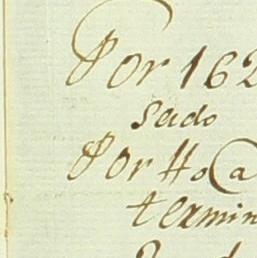 Por 162
sado
Por Ho
termin